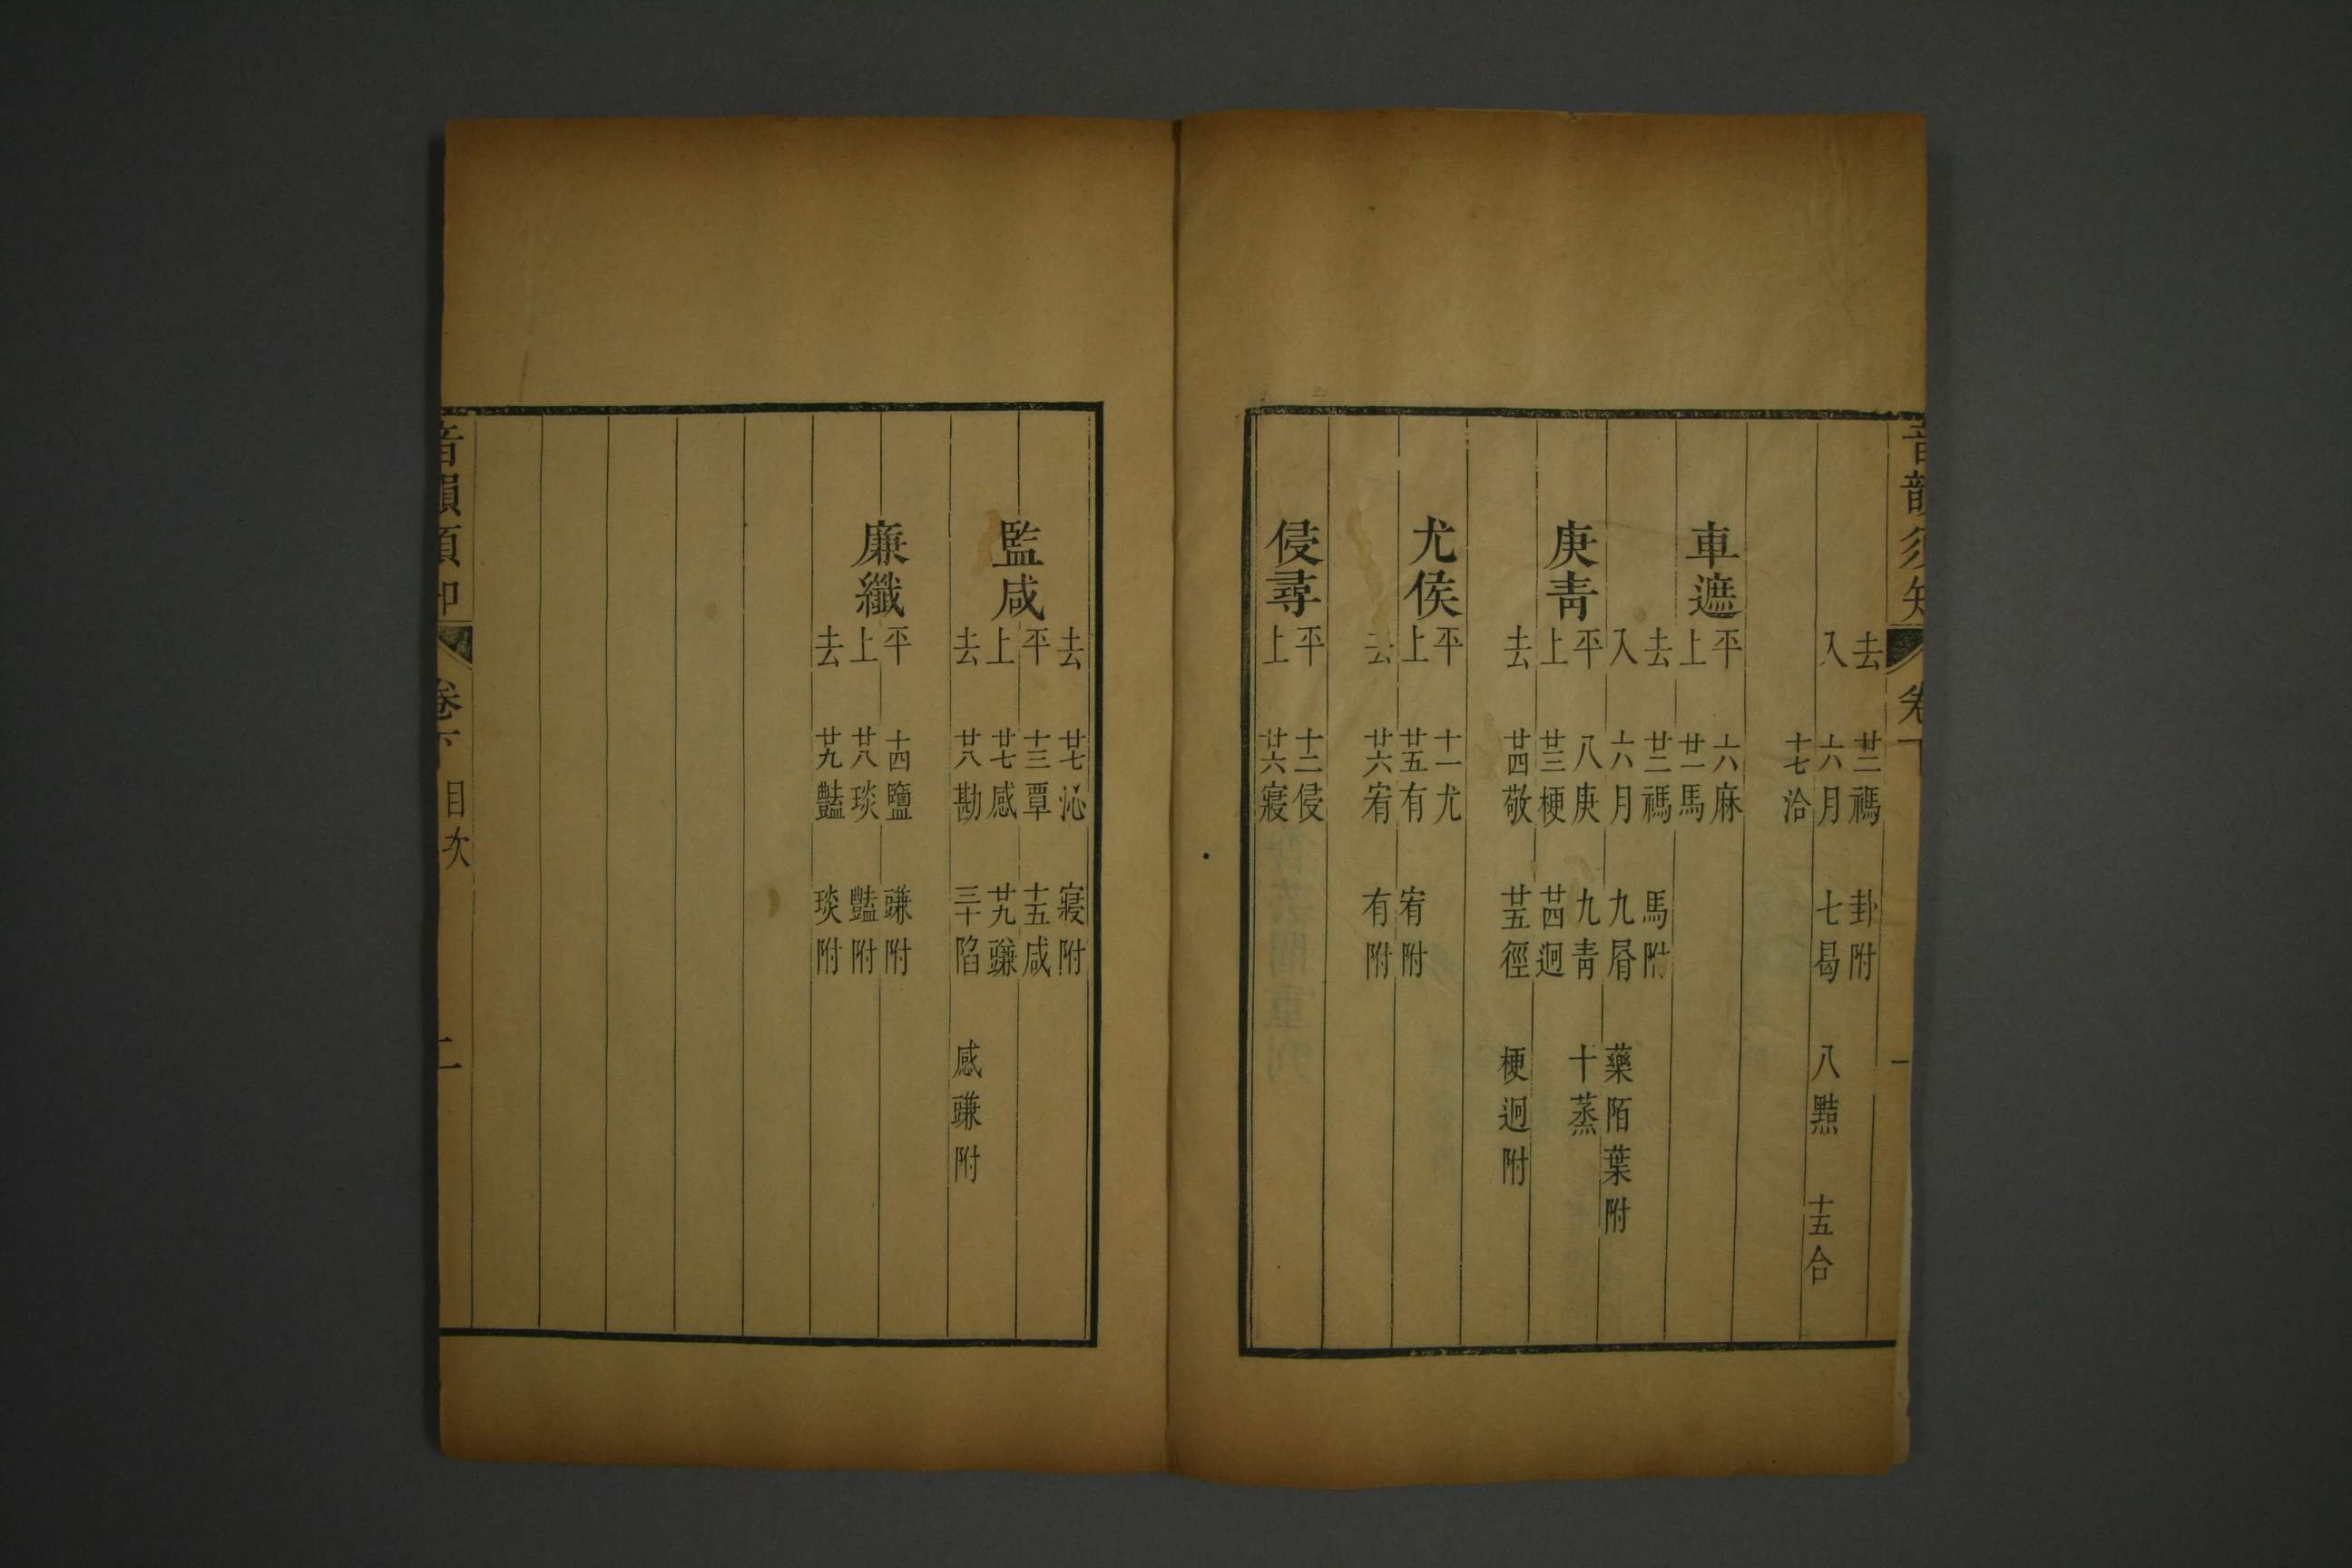 音韻須知 卷下 一
去 廿二禡 卦附
入 六月 七曷 八黠 十五合
十七洽
車遮 平 六麻
上 廿一馬
去 廿二禡 馬附
入 六月 九屑 藥陌葉附
庚青 平 八庚 九青 十蒸
上 廿三梗 廿四迥
去 廿四敬 廿五徑 梗迥附
尤侯 平 十一尤
上 廿五有 宥附
去 廿六宥 有附
侵尋 平 十二侵
上 廿六寢
去 廿七沁 寢附
監咸 平 十三覃 十五咸
上 廿七感 廿九豏
去 廿八勘 三十陷 感豏附
廉纖 平 十四鹽 豏附
上 廿八琰 豔附
去 廿九豔 琰附
音韻須知 卷下 目次 二